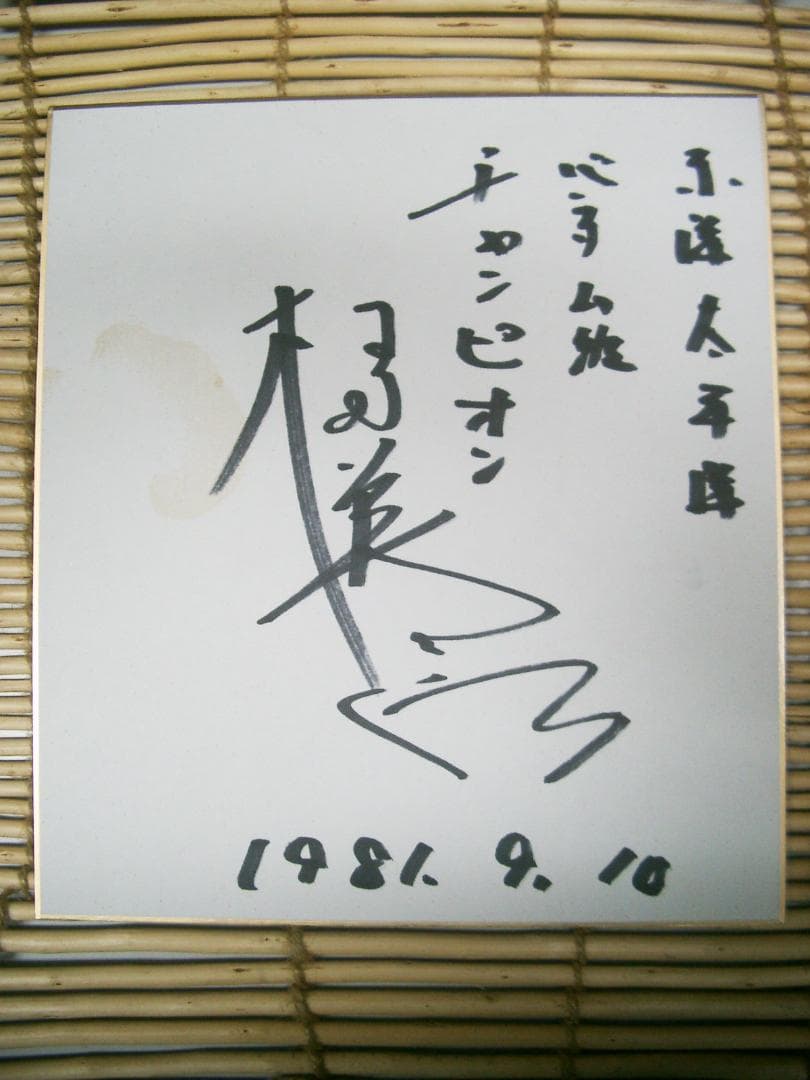 東洋太平洋
バンタム級
チャンピオン
1981. 9. 10